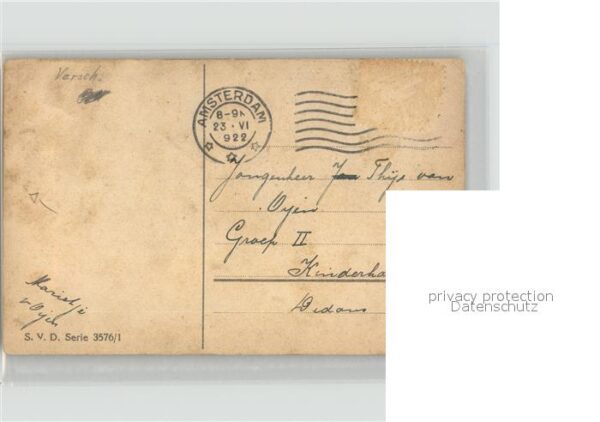 Versch.
AMSTERDAM
8-9N
23·VI
922
Jongenheer Jan Thijs van
Oyen
Groep II
Kinderha
privacy protection
Datenschutz
Marietje
v Oyen
S. V. D. Serie 3576/1